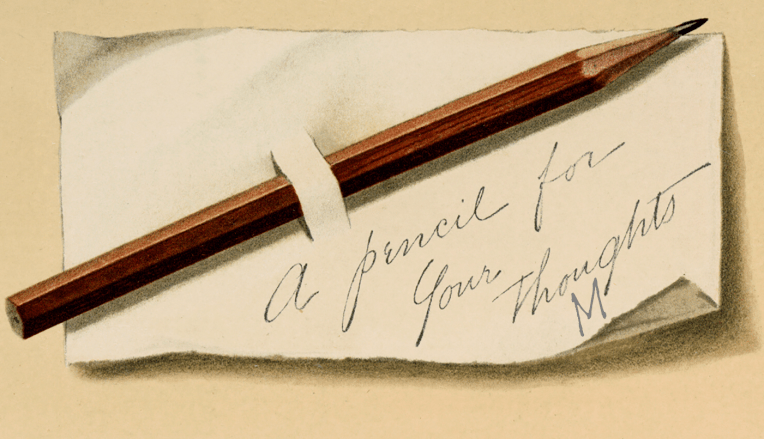 A pencil for
Your Thoughts
M